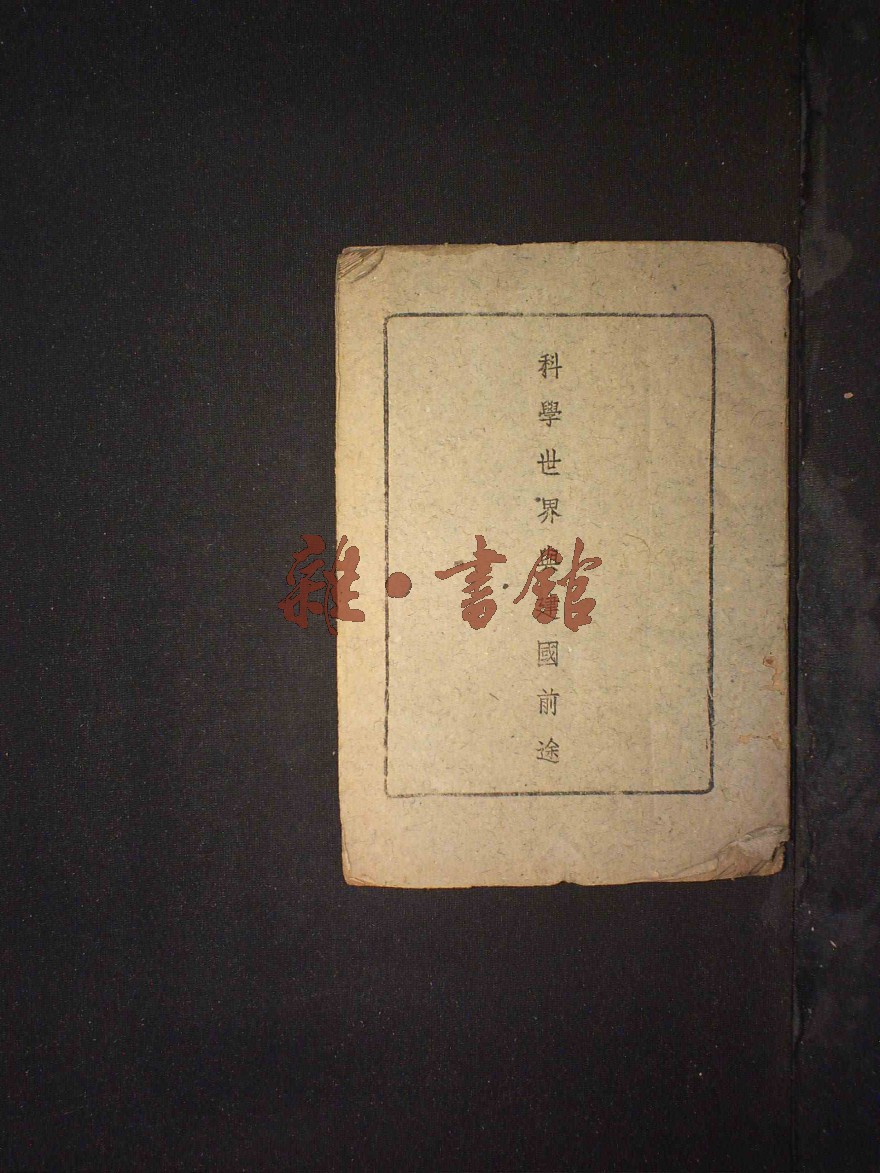 科學世界與建國前途
雜·書館